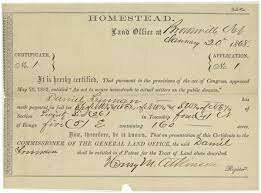 HOMESTEAD.
Land Office at Brownville Neb
January 20th 1868.
CERTIFICATE,
No. 1
APPLICATION,
No. 1
It is hereby certified, That pursuant to the provisions of the act of Congress, approved
May 20, 1862, entitled "An act to secure homesteads to actual settlers on the public domain,"
Daniel Freeman has
made payment in full for of
Section 26 in Township four (4) N
of Range five (5) E containing 160 acres.
Now, therefore, be it known, That on presentation of this Certificate to the
COMMISSIONER OF THE GENERAL LAND OFFICE, the said Daniel
Freeman shall be entitled to a Patent for the Tract of Land above described.
Henry M. Atkinson
Register.